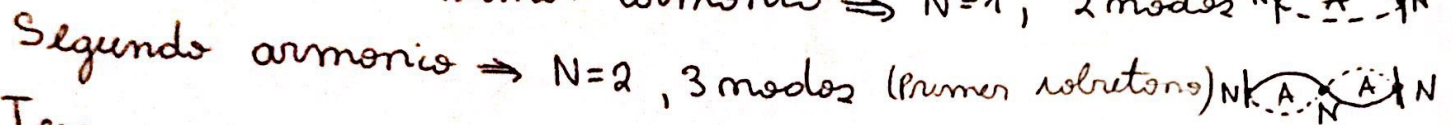 armonico ⇒ N=1, 2 modos N A N
Segundo armonico ⇒ N=2, 3 modos (Primer sobretono) N A N A N